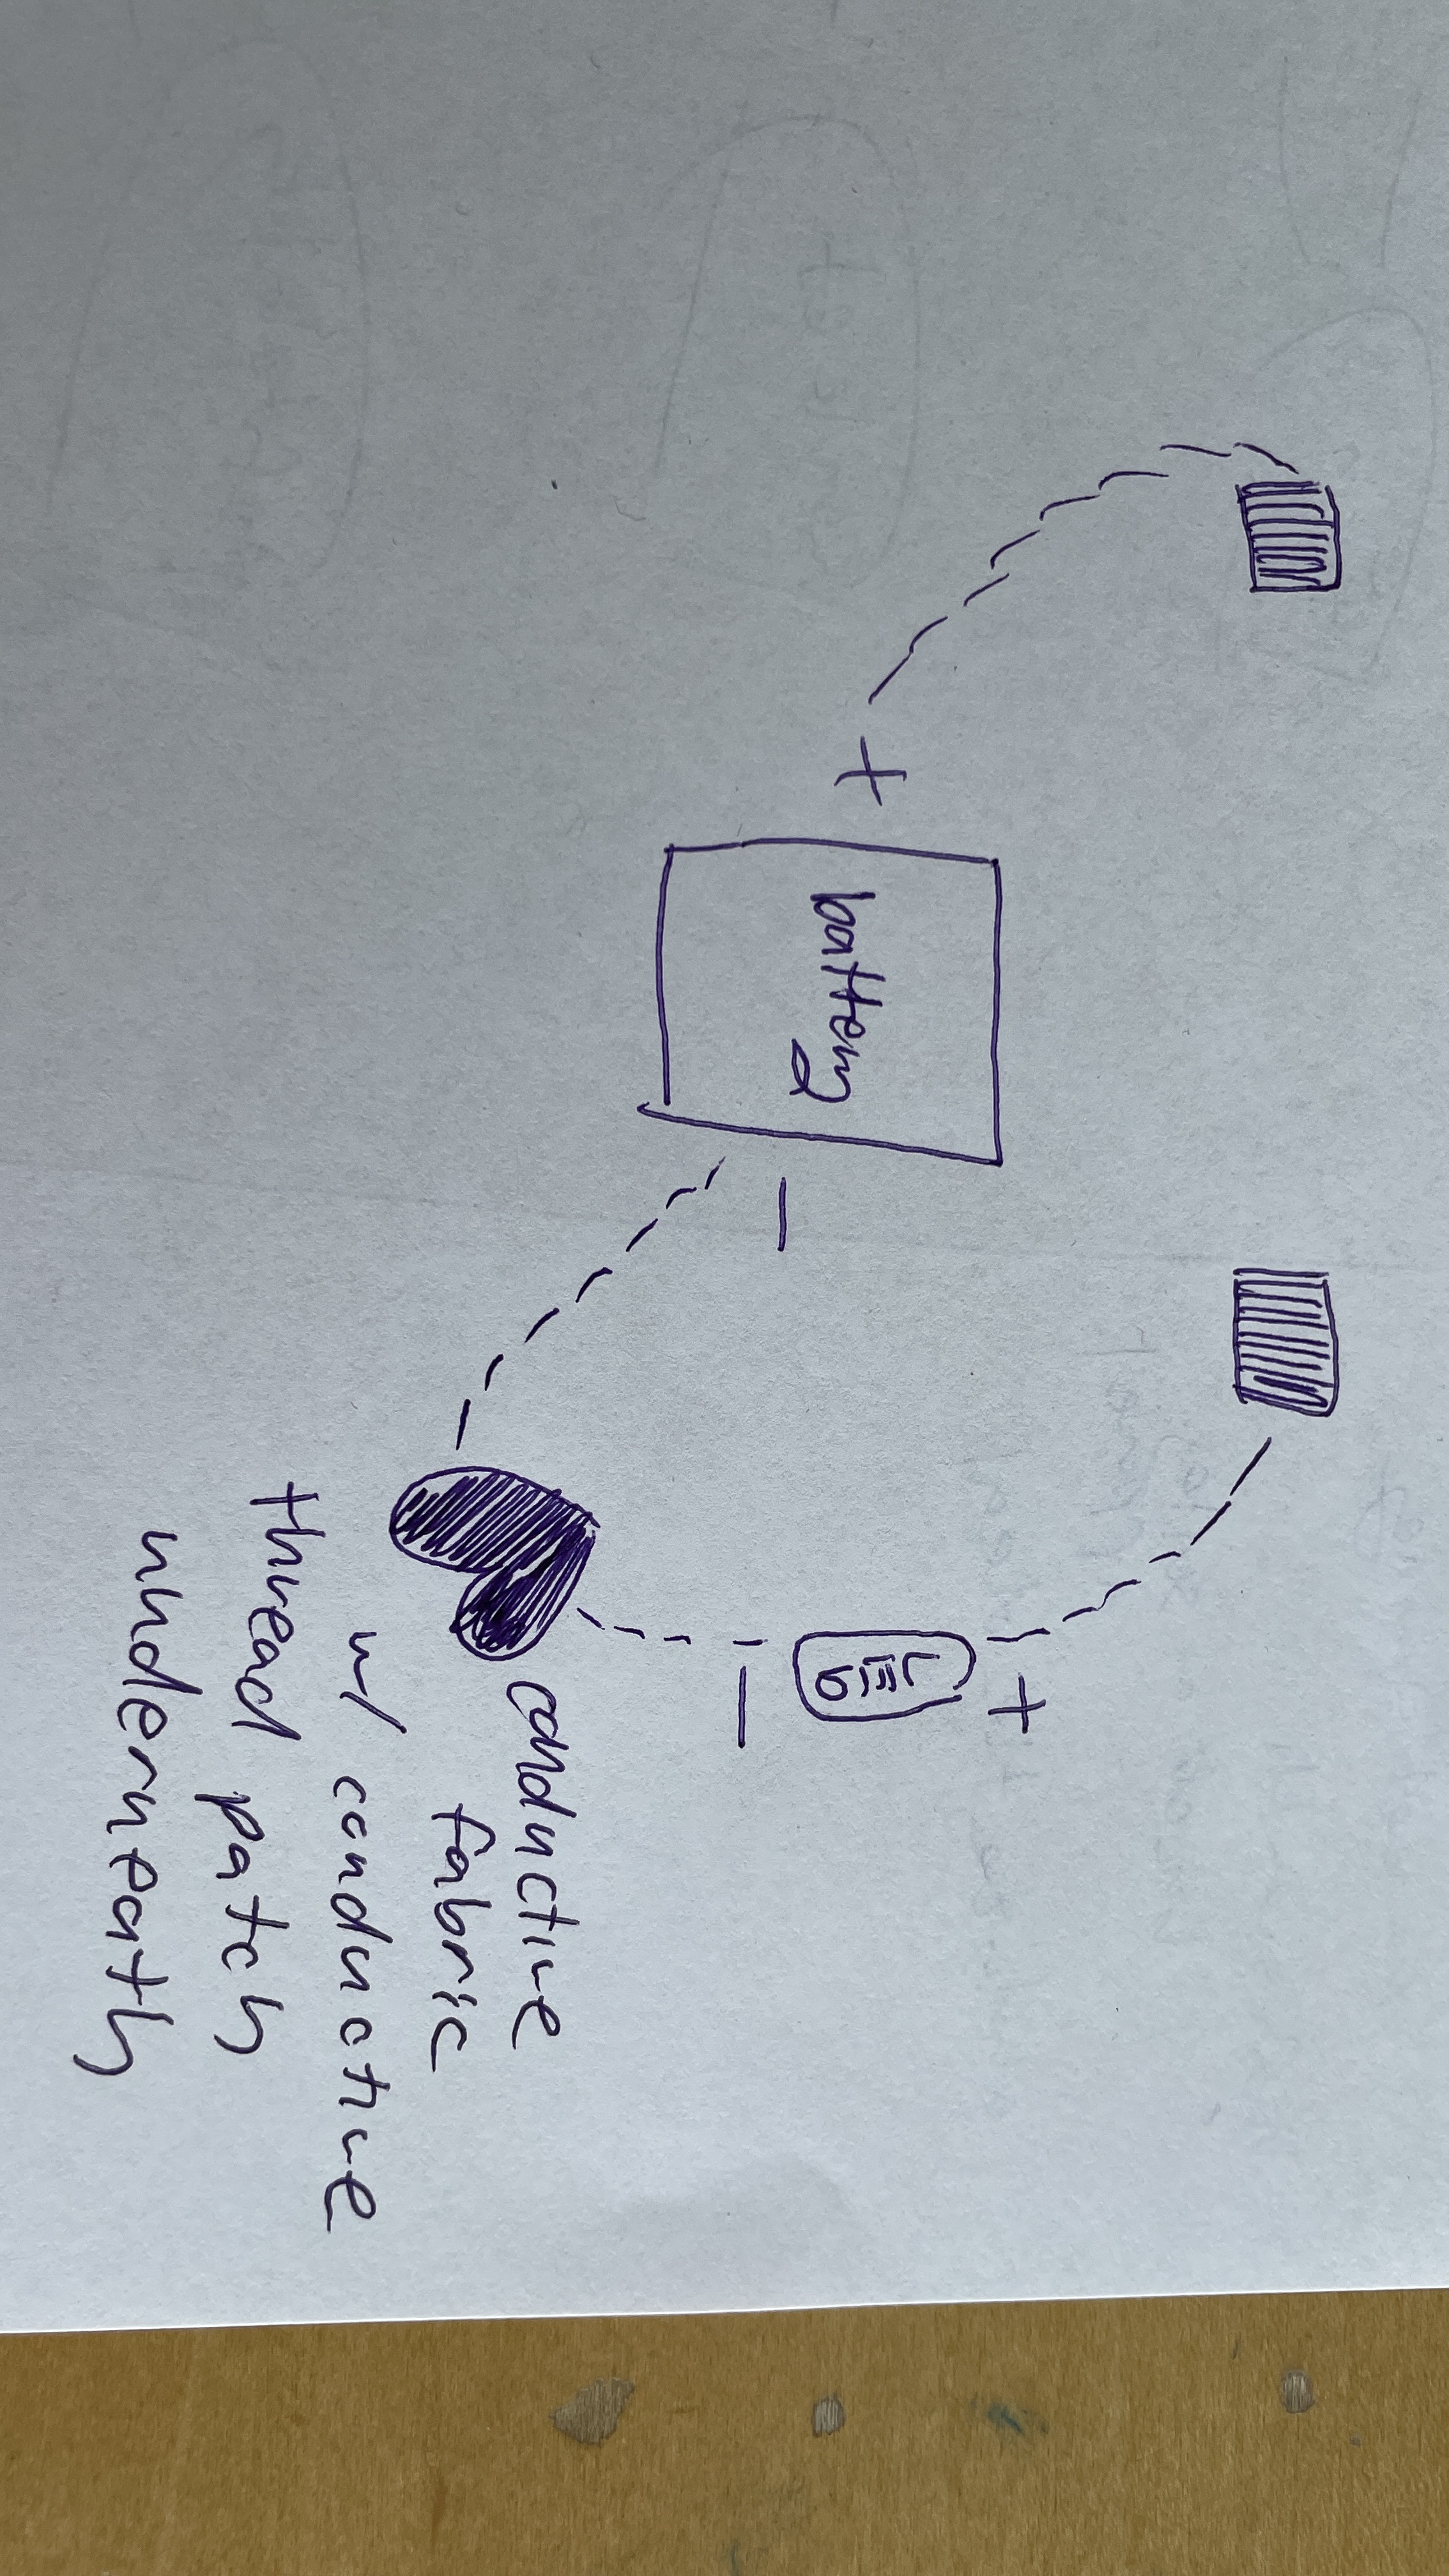 +
battery
-
+
LED
-
conductive
fabric
w/ conductive
thread patch
underneath